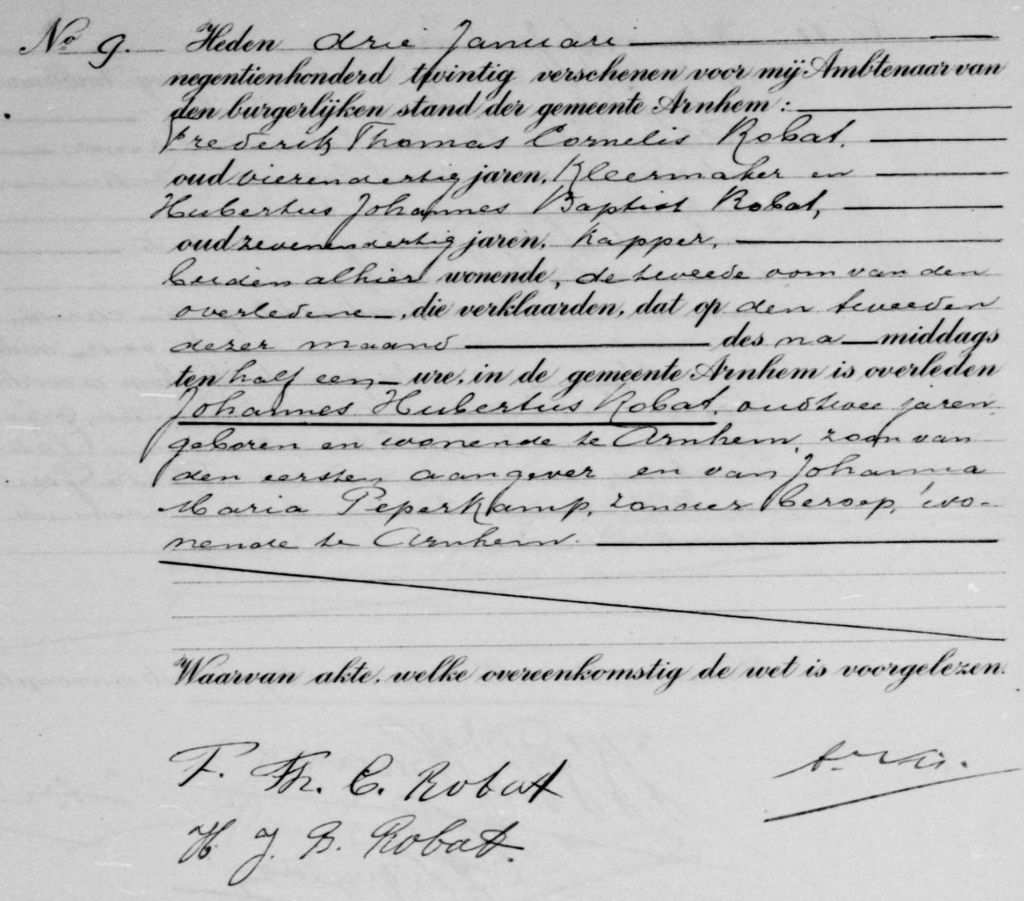 No 9. Heden drie Januari
negentienhonderd twintig verschenen voor mij Ambtenaar van
den burgerlijken stand der gemeente Arnhem:
Frederik Thomas Cornelis Robat,
oud vierendertig jaren, Kleermaker en
Hubertus Johannes Baptist Robat,
oud zevenendertig jaren, Kapper,
beiden alhier wonende, de tweede oom van den
overledene, die verklaarden, dat op den tweeden
dezer maand des na middags
ten half een ure, in de gemeente Arnhem is overleden
Johannes Hubertus Robat, oud twee jaren,
geboren en wonende te Arnhem, zoon van
den eersten aangever en van Johanna
Maria Peperkamp, zonder beroep, wo-
nende te Arnhem.
Waarvan akte, welke overeenkomstig de wet is voorgelezen.
F. Th. C. Robat
H. J. B. Robat.